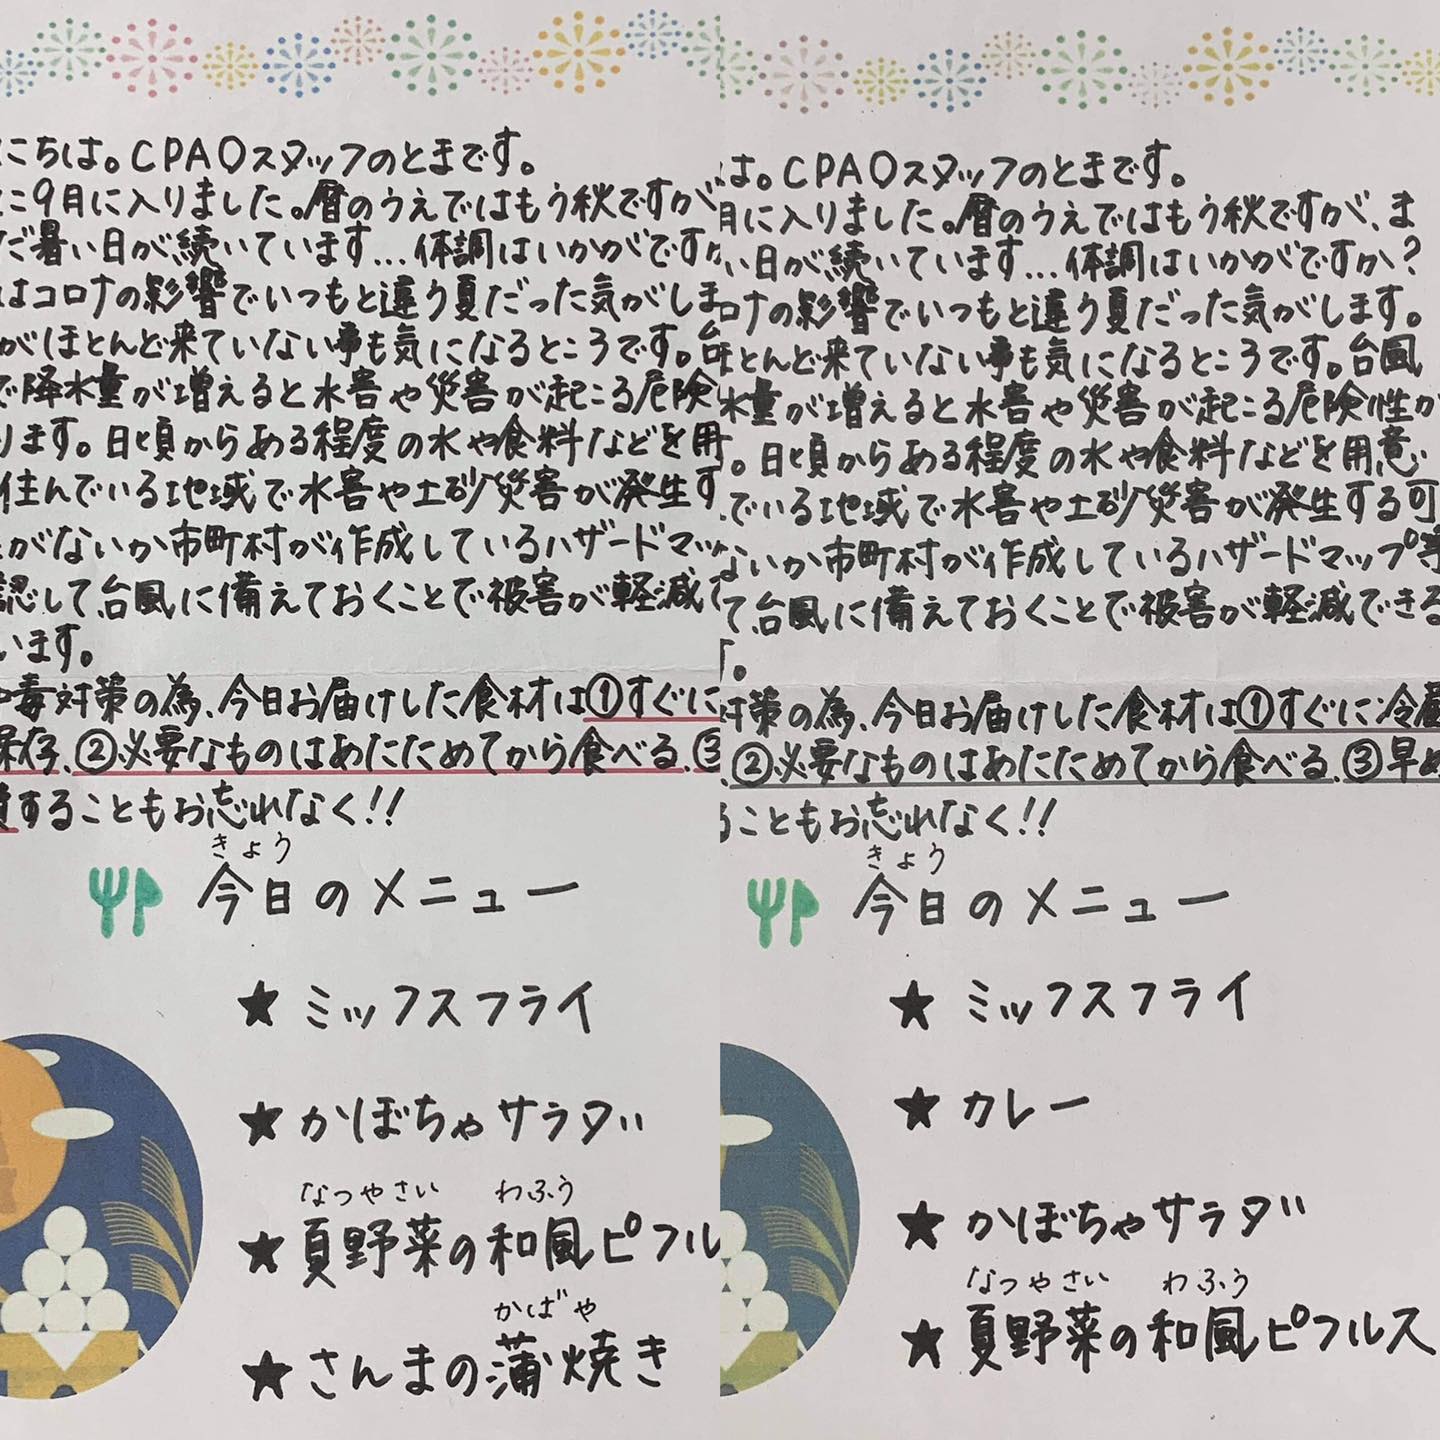 にちは。CPAOスタッフのとまです。
に9月に入りました。暦のうえではもう秋ですが
だ暑い日が続いています…体調はいかがですか
はコロナの影響でいつもと違う夏だった気がしま
がほとんど来ていない事も気になるところです。台
で降水量が増えると水害や災害が起こる危険
ります。日頃からある程度の水や食料などを用
住んでいる地域で水害や土砂災害が発生す
がないか市町村が作成しているハザードマッ
認して、台風に備えておくことで被害が軽減で
います。
中毒対策の為、今日お届けした食材は①すぐに
保存、②必要なものはあたためてから食べる、③
することもお忘れなく!!
きょう
今日のメニュー
★ ミックスフライ
★ かぼちゃサラダ
なつやさい わふう
★ 夏野菜の和風ピクル
かばや
★ さんまの蒲焼き
は。CPAOスタッフのとまです。
月に入りました。暦のうえではもう秋ですが、ま
い日が続いています…体調はいかがですか?
ロナの影響でいつもと違う夏だった気がします。
ほとんど来ていない事も気になるところです。台風
水量が増えると水害や災害が起こる危険性が
。日頃からある程度の水や食料などを用意
でいる地域で水害や土砂災害が発生する可
ないか市町村が作成しているハザードマップ等
て、台風に備えておくことで被害が軽減できる
す。
対策の為、今日お届けした食材は①すぐに冷蔵
、②必要なものはあたためてから食べる、③早め
ることもお忘れなく!!
きょう
今日のメニュー
★ ミックスフライ
★ カレー
★ かぼちゃサラダ
なつやさい わふう
★ 夏野菜の和風ピクルス